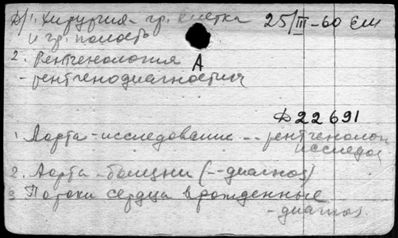 Д/1. Хирургия - гр. клетка 25/III-60 Ем
и гр. полость
2. Рентгенология А
- рентгенодиагностика
Д22691
1. Аорта - исследование -- рентгенолог
исследов
2. Аорта - болезни (--диагноз)
3 Пороки сердца врожденные
- диагноз.